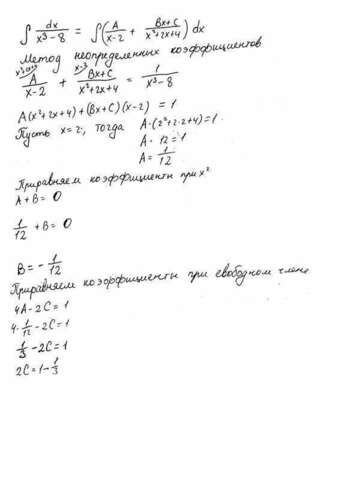 ∫ dx/(x³-8) = ∫(A/(x-2) + (Bx+C)/(x²+2x+4)) dx
Метод неопределенных коэффициентов
A/(x-2) + (Bx+C)/(x²+2x+4) = 1/(x³-8)
A(x²+2x+4)+(Bx+C)(x-2) = 1
Пусть x=2, тогда A·(2²+2·2+4)=1
A·12=1
A=1/12
Приравняем коэффициенты при x²
A+B=0
1/12 +B=0
B=-1/12
Приравняем коэффициенты при свободном члене
4A-2C=1
4·1/12-2C=1
1/3-2C=1
2C=1-1/3